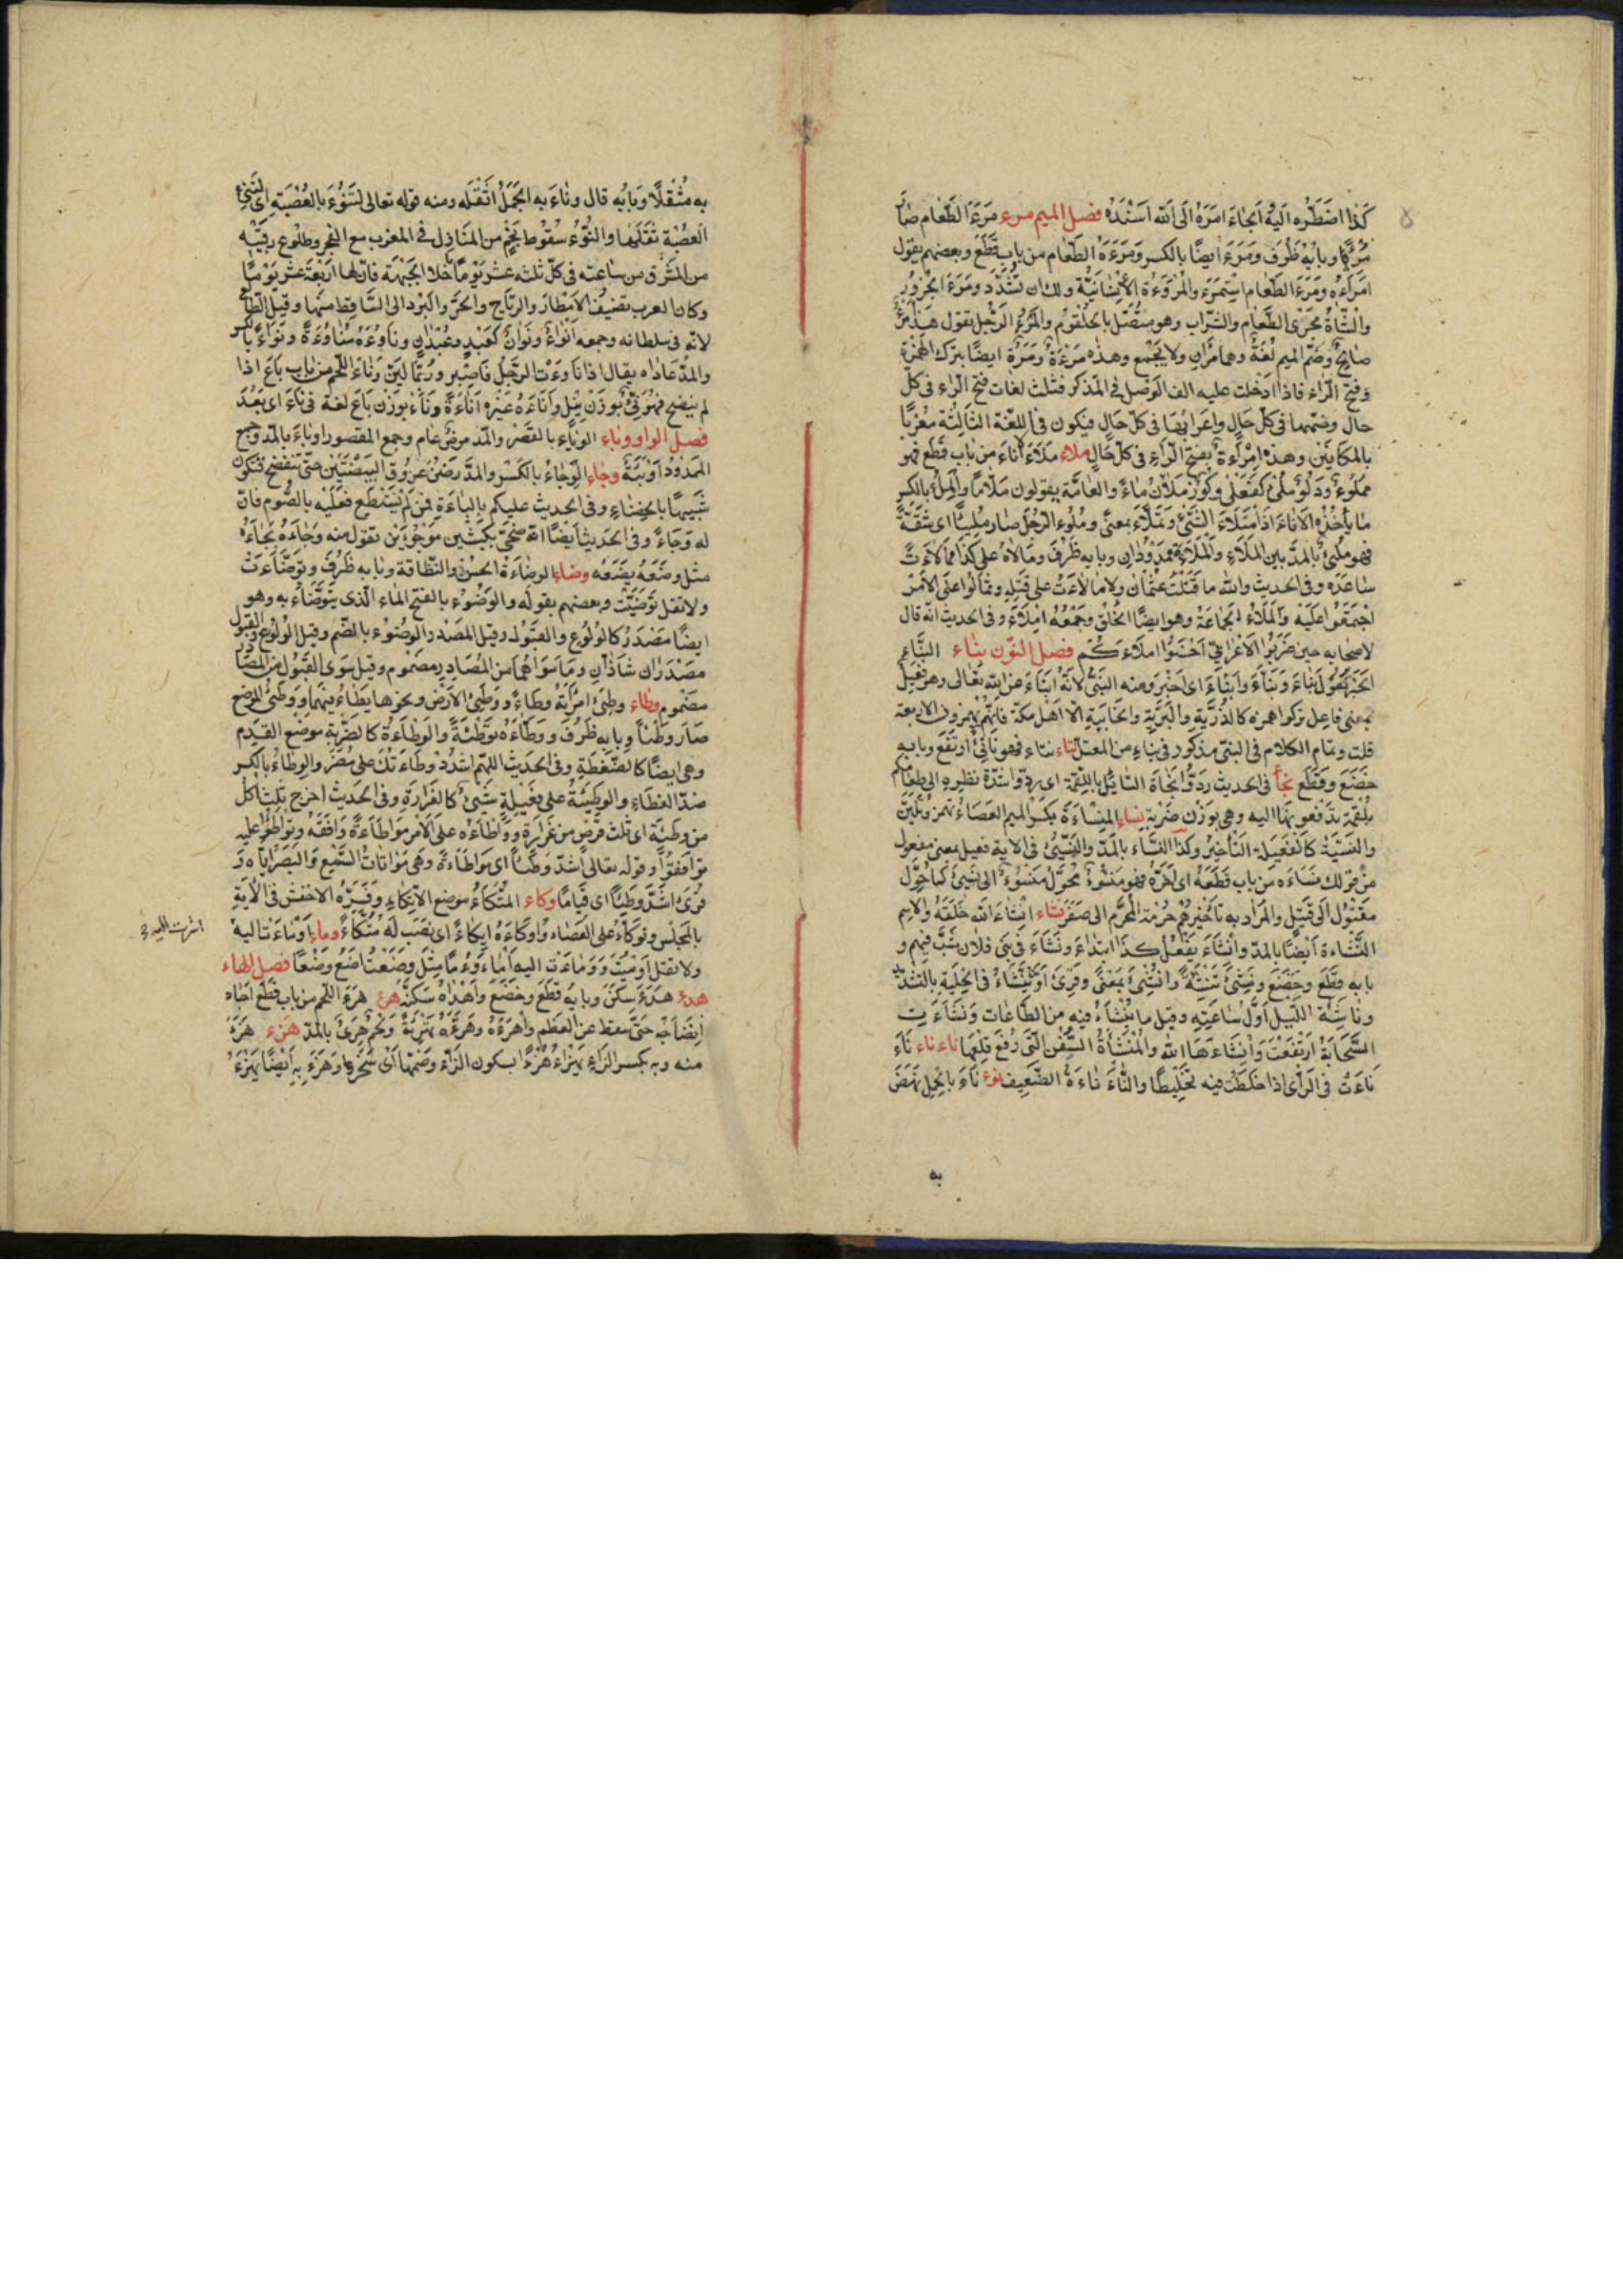 كذا اضطره اليه اجاء امره الى الله اسنده فصل الميم مرء مرء الطعام صار
مريئا وبابه ظرف ومرء ايضا بالكسر ومرءه الطعام من باب قطع وبعضهم يقول
امراءه ومرء الطعام استمرء والمروءة الانسانية ولك ان تشدد ومرء الجزور
والشاة مجرى الطعام والشراب وهو متصل بالحلقوم والمرء الرجل تقول هذا مرء
صالح وضم الميم لغة وهما مران ولا يجمع وهذه مرءة ومرة ايضا بترك الهمزة
وفتح الراء فاذا ادخلت عليه الف الوصل في المذكر فثلث لغات فتح الراء في كل
حال وضمها في كل حال واعرابها في كل حال فيكون في اللغة الثالثة معربا
بالمكانين وهذه امراءة بفتح الراء في كل حال ملاء ملاء اناء من باب قطع فهو
مملوء ودلو ملئ كفعلى وكوز ملان ماء والعامة يقولون ملا ما والملء بالكسر
ما يأخذه الاناء اذا امتلاء الشئ وتملاء بمعنى وملوء الرجل صار مليئا اى ثقة
فهو ملئ بالمد بين الملاء والملاءة ممدودان وبابه ظرف ومالاه على كذا ممالاءة
ساعده وفي الحديث والله ما قتلت عثمان ولا مالاءت على قتله وتمالوا على الامر
اجتمعوا عليه والملاء الجماعة وهو ايضا الخلق وجمعه املاء وفي الحديث انه قال
لاصحابه حين ضربوا الاعرابي احسنوا املاءكم فصل النون نباء النباء
الخبر تقول نباء ونباء وانباء اى اخبر ومنه النبئ لانه انباء عن الله تعالى وهو فعيل
بمعنى فاعل تركوا همزه كالذرية والبرية والخابية الا اهل مكة فانهم يهمزون الاربعة
قلت وتمام الكلام في النبئ مذكور في نباء من المعتل نتاء نتاء فهو ناتئ ارتفع وبابه
خضع وقطع نجأ في الحديث ردوا نجاة السايل باللقمة اى ردوا شدة نظره الى طعامكم
بلقمة تدفعونها اليه وهي بوزن ضربة نساء المنساءة بكسر الميم العصاء تهمز وتلين
والنسيئة كالفعيلة التأخير وكذا النساء بالمد والنسئ في الاية فعيل بمعنى مفعول
من قولك نساءه من باب قطعه اى اخره فهو منسوء محول منسوء الى نسئ كما حول
مقتول الى قتيل والمراد به تأخيرهم حرمة المحرم الى صفر نشاء انشاء الله خلقه والاسم
النشاءة ايضا بالمد وانشاء يفعل كذا ابتداء ونشاء في بنى فلان شب فيهم و
بابه قطع وخضع ونشئ تنشئة وانشئ بمعنى وقرئ او ينشاء في الحلية بالتشديد
وناشئة الليل اول ساعته وقيل ما ينشاء فيه من الطاعات ونشاءت
السحابة ارتفعت وانشاءها الله والمنشأة السفن التي رفع قلعها ناء ناء ناء
ناءت في الراى اذا خلطت فيه تخليطا والناء ناءة الضعيف نوء ناء بالحمل نهض
به
به مثقلا وبابه قال وناء به الحمل اثقله ومنه قوله تعالى لتنوء بالعصبة اى لتنئ
العصبة بثقلها والنوء سقوط نجم من المنازل في المغرب مع الفجر وطلوع رقيبه
من المشرق من ساعته في كل ثلثه عشر يوما خلا الجبهة فان لها اربعة عشر يوما
وكان العرب تضيف الامطار والرياح والحر والبرد الى الساقط منها وقيل الطالع
لانه في سلطانه وجمعه انواء ونوان كعبد وعبدان وناوءه مناوءة ونواء بالكسر
والمد عاداه يقال اذا ناوءت الرجل فاصبر وربما لين وناء اللحم من باب باع اذا
لم ينضج فهو نئ بوزن نيل واناءه غيره اناءة وناء بوزن باع لغة في ناء اى بعد
فصل الواو وباء الوباء بالقصر والمد مرض عام وجمع المقصور اوباء بالمد وجمع
الممدود اوبئة وجاء الوجاء بالكسر والمد رض عروق البيضتين حتى تنفضخ فتكون
شبيها بالخصاء وفي الحديث عليكم بالباءة فمن لم يستطع فعليه بالصوم فان
له وجاء وفي الحديث ايضا انه ضحى بكبشين موجوءين تقول منه وجاءه يجاءه
مثل وضعه يضعه وضاء الوضاءة الحسن والنظافة وبابه ظرف وتوضاءت
ولا تقل توضيت وبعضهم يقوله والوضوء بالفتح الماء الذى يتوضاء به وهو
ايضا مصدر كالولوع والقبول وقيل المصدر الوضوء بالضم وقيل الولوع والقبول
مصدران شاذان وما سواهما من المصادر مضموم وقيل سوى القبول من المصادر
مضموم وطاء وطئ امرأته وطاء ووطئ الارض ونحوها يطاء فيهما ووطئ الموضع
صار وطئا وبابه ظرف ووطاءه توطئة والوطاءة كالضربة موضع القدم
وهي ايضا كالضغطة وفي الحديث اللهم اشدد وطاءتك على مضر والوطاء بالكسر
ضد الغطاء والوطيئة على فعيلة شئ كالغرارة وفي الحديث اخرج ثلث اكل
من وطيئة اى ثلث قرص من غرارة وواطاءه على الامر مواطاءة وافقه وتواطؤا عليه
توافقوا وقوله تعالى اشد وطاء اى مواطاءة وهي مواتات السمع والبصر اياه و
قرئ اشد وطئا اى قياما وكاء المتكاء موضع الاتكاء وفسره الاخفش في الاية
بالمجلس وتوكأ على العصاء واوكاءه ايكاء اى نصب له متكاء وماء اومأت اليه
ولا تقل اوميت وومأت اليه اماء ومأ مثل وضعت اضع وضعا فصل الهاء
هدء هدء سكن وبابه قطع وخضع واهداه سكنه هرء هرء اللحم من باب قطع اجاد
انضاجه حتى سقط عن العظم واهرءه وهرءه تهرئة ولحم هرئ بالمد هزء هزء
منه وبه بكسر الزاء يهزاء هزءا بسكون الزاء وضمها اى سخر وهزء به ايضا يهزء